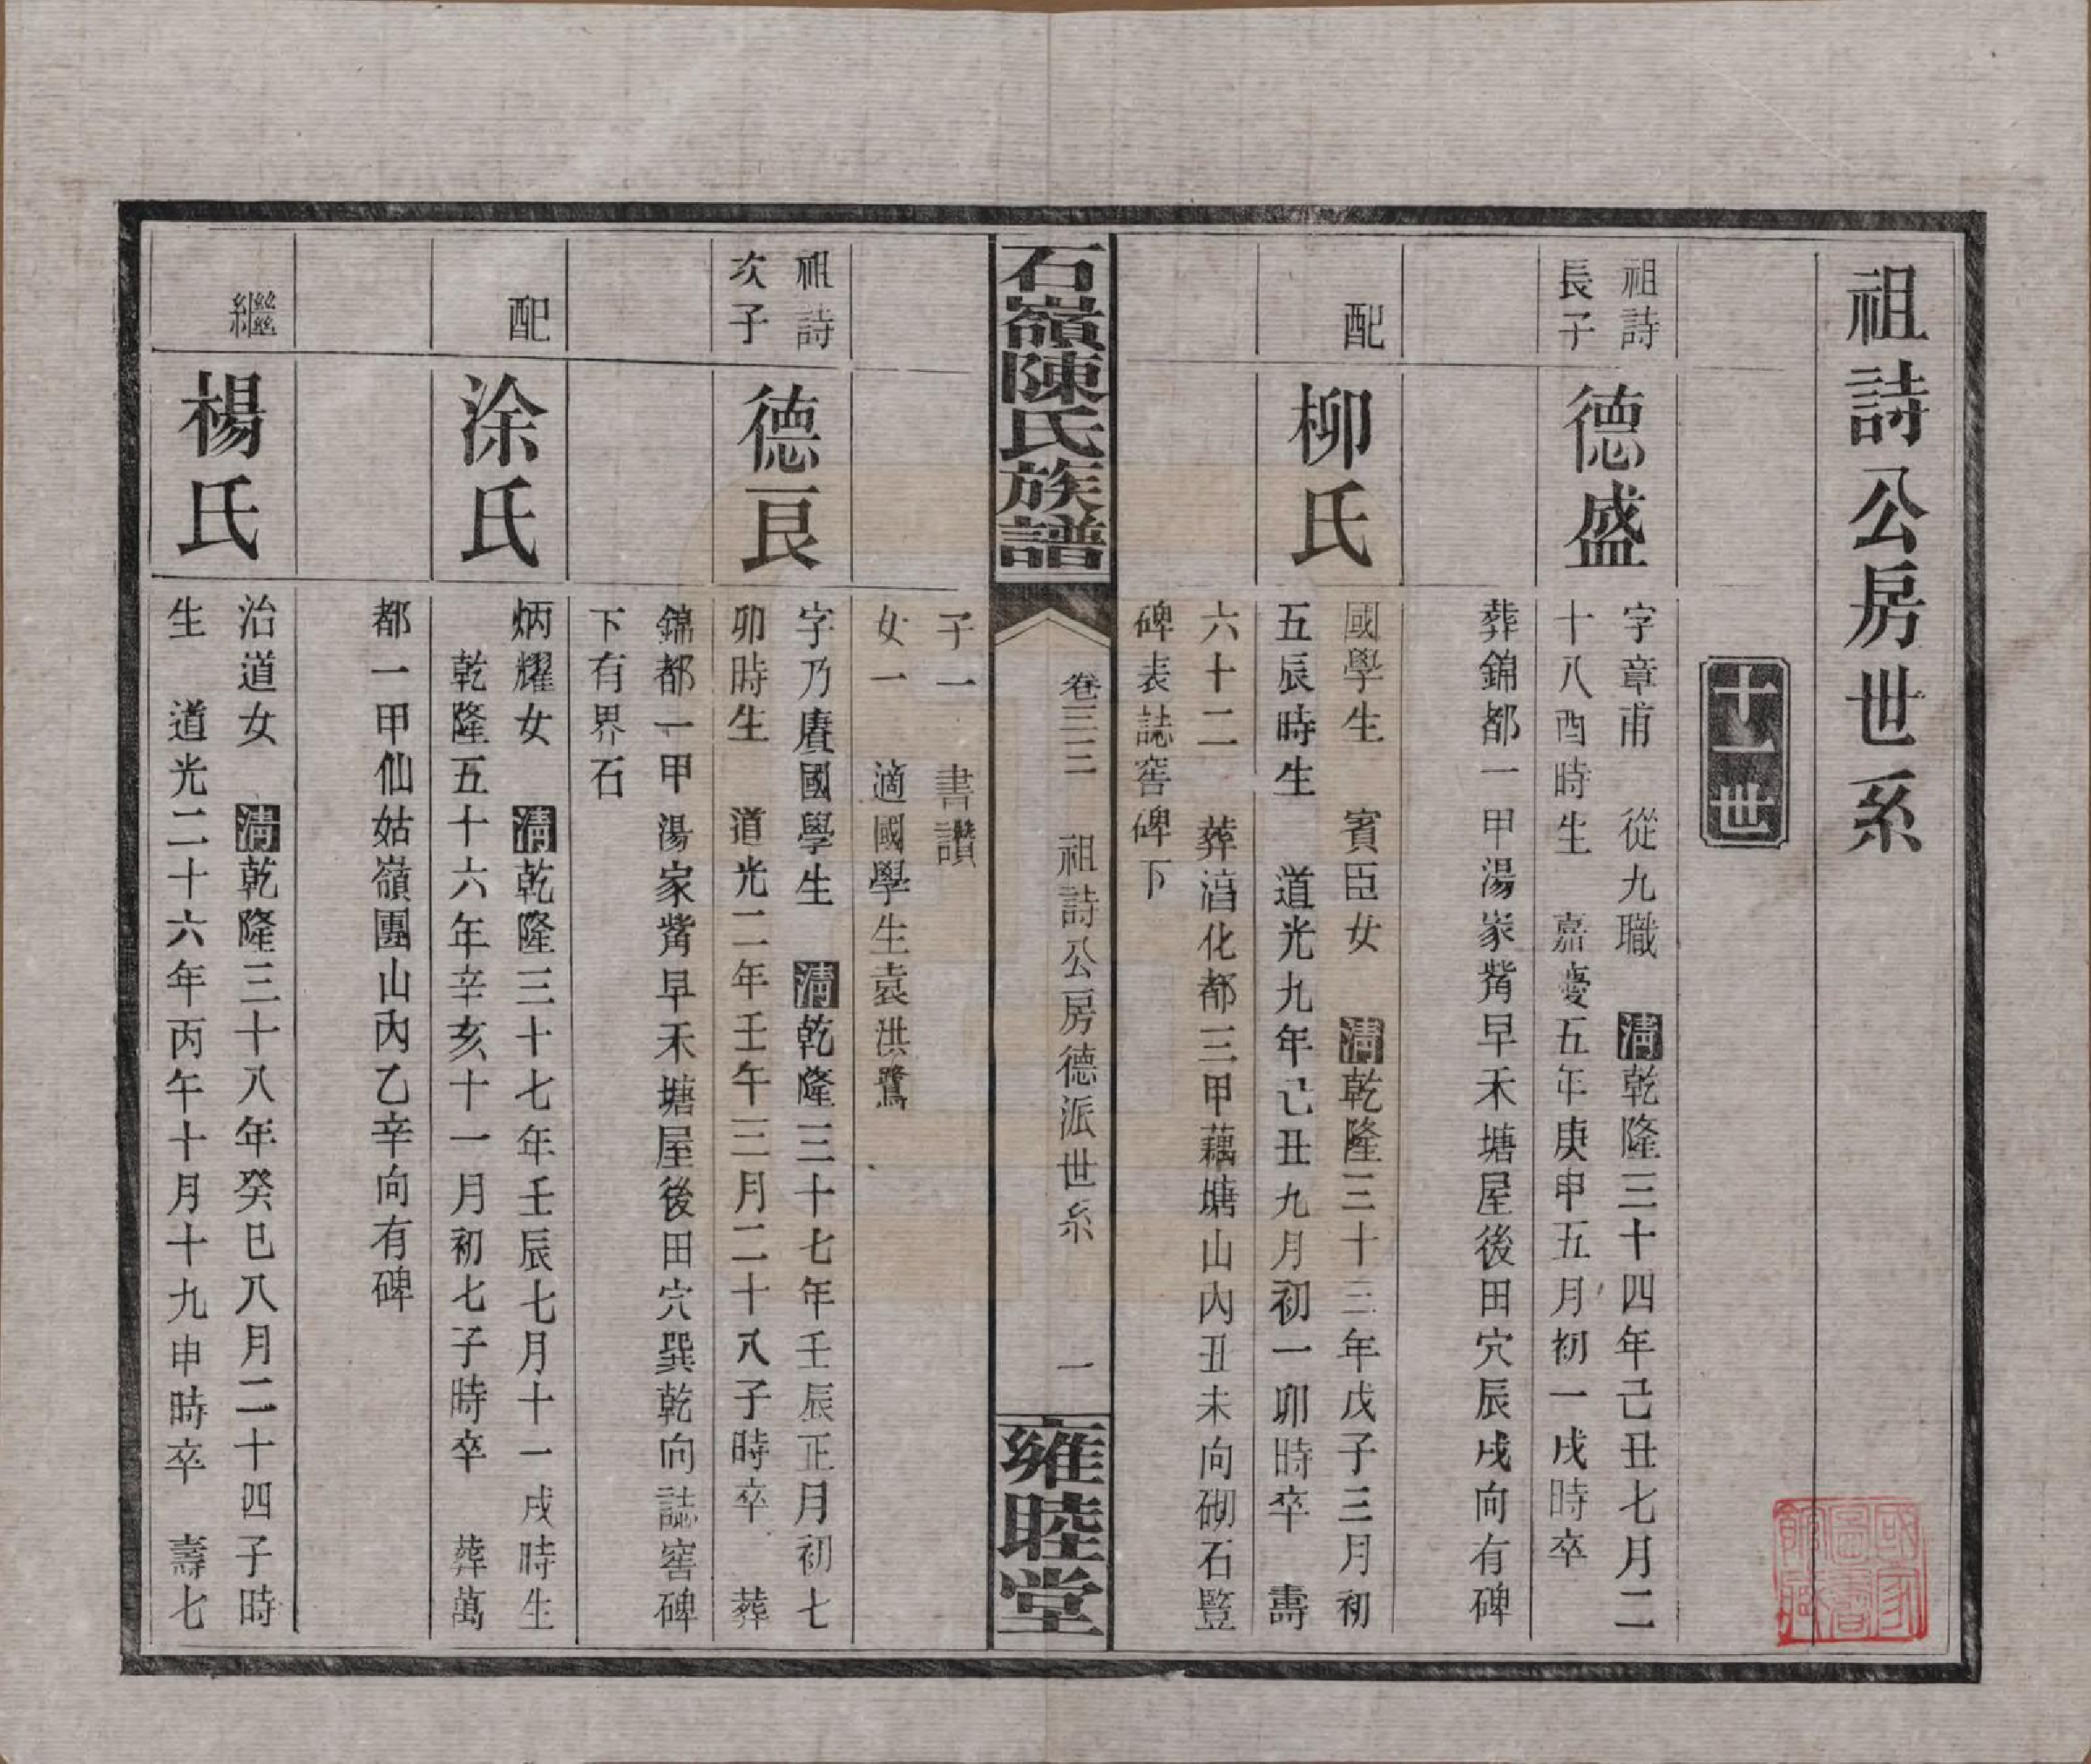 祖詩公房世系
十一世
祖詩
長子
德盛
字章甫　從九職　清乾隆三十四年己丑七月二
十八酉時生　嘉慶五年庚申五月初一戌時卒
葬錦都一甲湯家觜早禾塘屋後田穴辰戌向有碑
配
柳氏
國學生　賓臣女　清乾隆三十三年戊子三月初
五辰時生　道光九年己丑九月初一卯時卒　壽
六十二　葬湻化都三甲藕塘山內丑未向砌石豎
碑表誌窖碑下
石嶺陳氏族譜
卷三三　祖詩公房德派世系　一
雍睦堂
子一　書讚
女一　適國學生袁洪鷺
祖詩
次子
德良
字乃賡國學生　清乾隆三十七年壬辰正月初七
卯時生　道光二年壬午三月二十八子時卒　葬
錦都一甲湯家觜早禾塘屋後田穴巽乾向誌窖碑
下有界石
配
涂氏
炳耀女　清乾隆三十七年壬辰七月十一戌時生
乾隆五十六年辛亥十一月初七子時卒　葬萬
都一甲仙姑嶺團山內乙辛向有碑
繼
楊氏
治道女　清乾隆三十八年癸巳八月二十四子時
生　道光二十六年丙午十月十九申時卒　壽七
國家圖書館藏